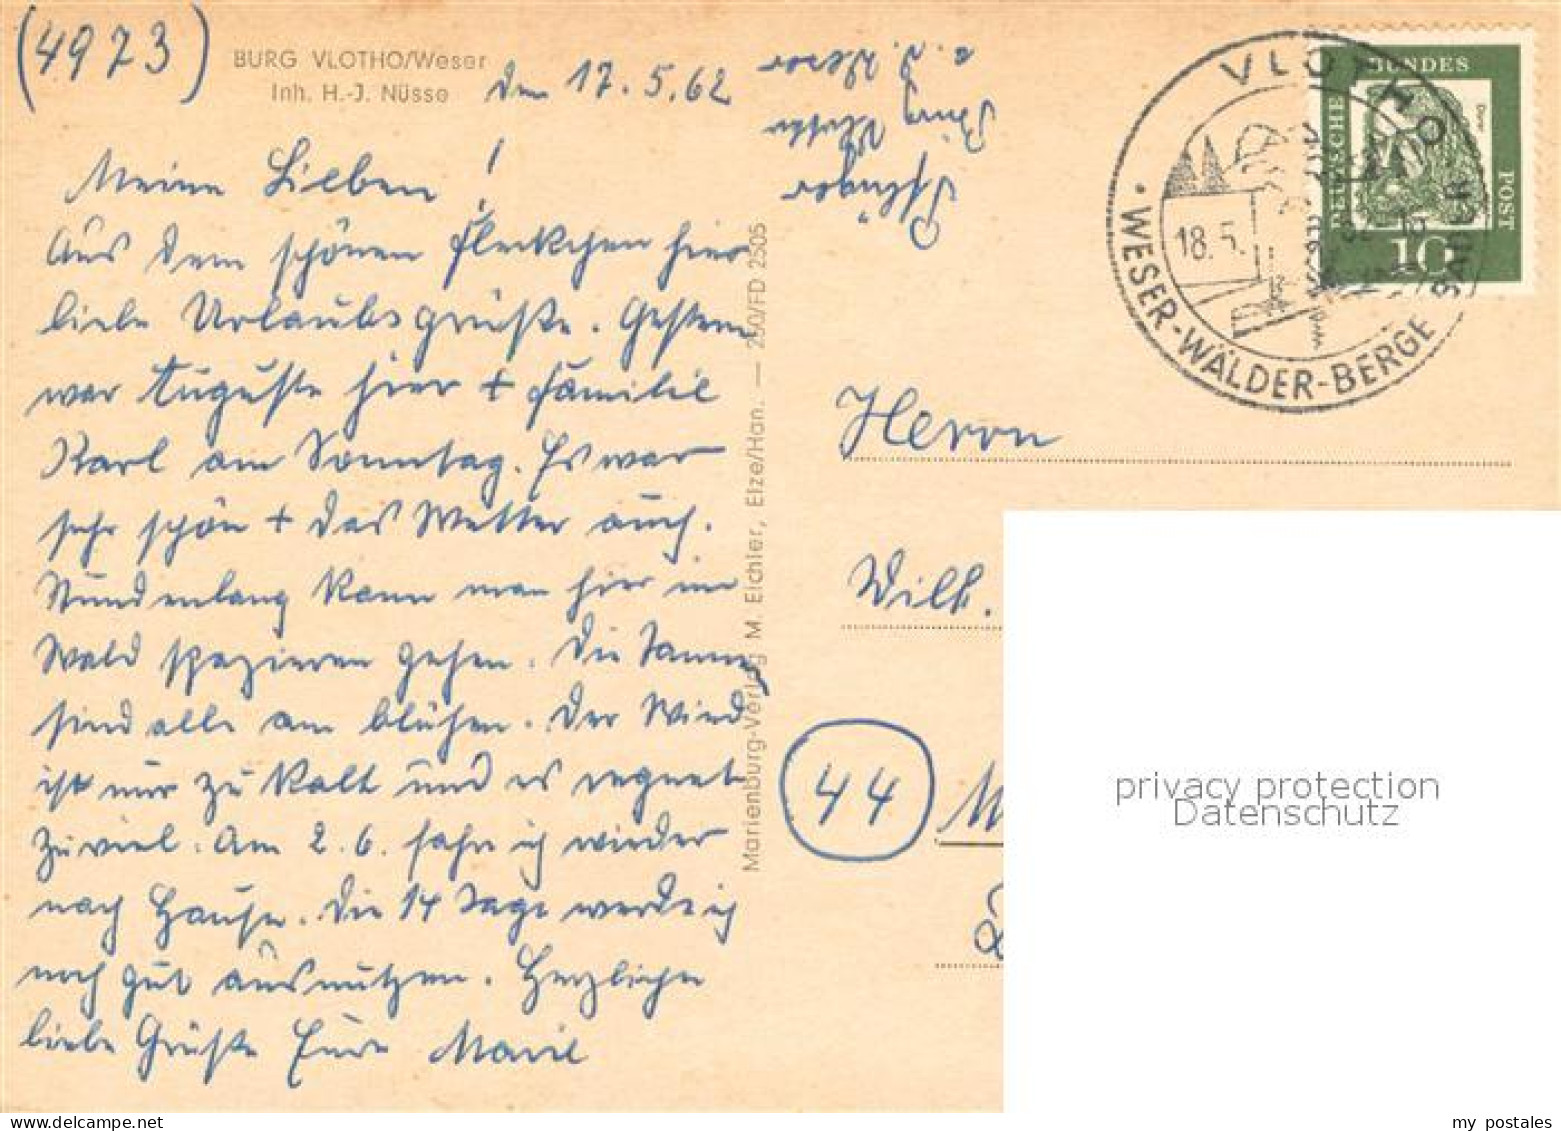 (4973)
BURG VLOTHO/Weser
Inh. H.-J. Nüsse
den 17.5.62
Meine Lieben!
Aus dem schönen Fleckchen hier
liebe Urlaubsgrüße. Gestern
war Auguste hier + Familie
Karl am Sonntag. Es war
sehr schön + das Wetter auch.
Stundenlang kann man hier im
Wald spazieren gehen. Die Tannen
sind alle am blühen. Der Wind
ist nur zu kalt und es regnet
zuviel. Am 2.6. fahre ich wieder
nach Hause. Die 14 Tage werde ich
noch gut ausnutzen. Herzliche
liebe Grüße Eure Marie
Marienburg-Verlag M. Eichler, Elze/Han. — 250/FD 2505
Burg Vlotho
a. d. Weser
VLOTHO
18.5.
WESER-WÄLDER-BERGE BÄDER
DEUTSCHE
BUNDES
POST
Dürer
10
Herrn
Wilh.
44 M
privacy protection
Datenschutz
my postales